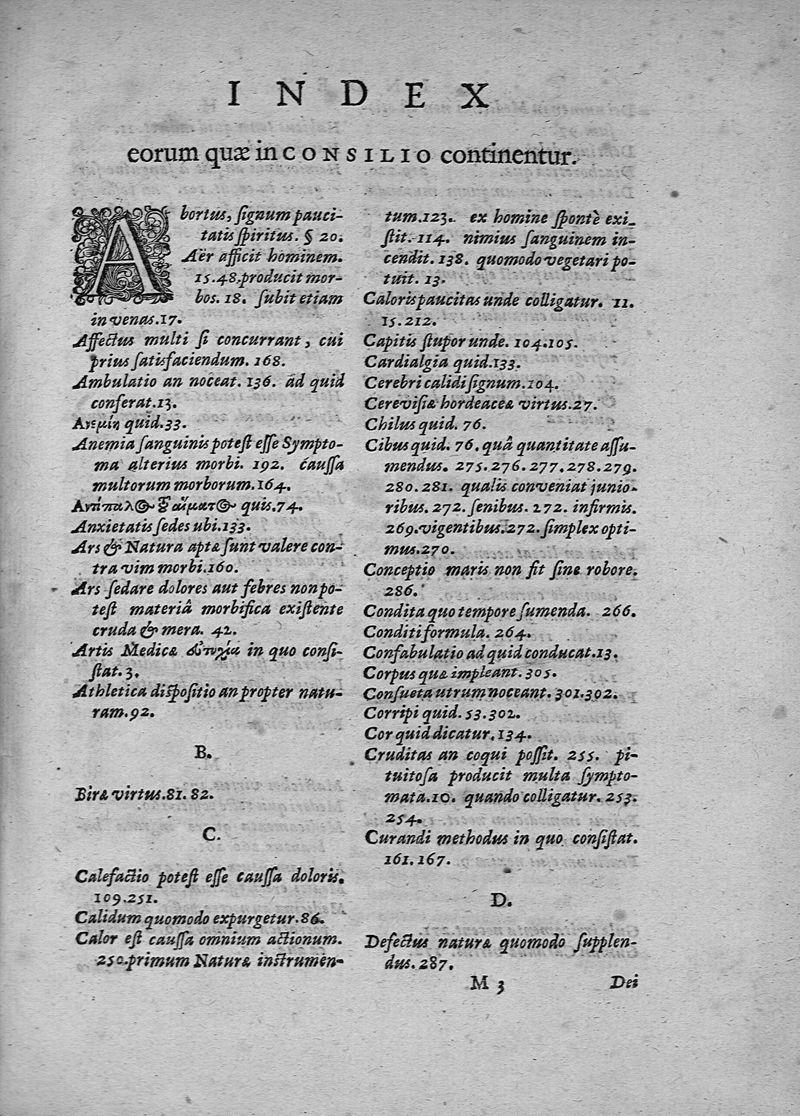 INDEX
eorum quæ in CONSILIO continentur.
Abortus, ſignum pauci-
tatis ſpiritus. § 20.
Aër afficit hominem.
15.48. producit mor-
bos. 18. ſubit etiam
in venas. 17.
Affectus multi ſi concurrant, cui
prius ſatisfaciendum. 168.
Ambulatio an noceat. 136. ad quid
conferat. 13.
Ανεμίη quid. 33.
Anemia ſanguinis poteſt eſſe Sympto-
ma alterius morbi. 192. cauſſa
multorum morborum. 164.
quis. 74.
Anxietatis ſedes ubi. 133.
Ars & Natura aptæ ſunt valere con-
tra vim morbi. 160.
Ars ſedare dolores aut febres non po-
teſt materiâ morbifica exiſtente
cruda & mera. 42.
Artis Medicæ in quo conſi-
ſtat. 3.
Athletica diſpoſitio an propter natu-
ram. 92.
B.
Biræ virtus. 81. 82.
C.
Calefactio poteſt eſſe cauſſa doloris.
109. 251.
Calidum quomodo expurgetur. 86.
Calor eſt cauſſa omnium actionum.
250. primum Naturæ inſtrumen-
tum. 123. ex homine ſpontè exi-
ſtit. 114. nimius ſanguinem in-
cendit. 138. quomodo vegetari po-
tuit. 13.
Caloris paucitas unde colligatur. 11.
15. 212.
Capitis ſtupor unde. 104. 105.
Cardialgia quid. 133.
Cerebri calidi ſignum. 104.
Cereviſiæ hordeaceæ virtus. 27.
Chilus quid. 76.
Cibus quid. 76. quâ quantitate aſſu-
mendus. 275. 276. 277. 278. 279.
280. 281. qualis conveniat junio-
ribus. 272. ſenibus. 272. infirmis.
269. vigentibus. 272. ſimplex opti-
mus. 270.
Conceptio maris non fit ſine robore.
286.
Condita quo tempore ſumenda. 266.
Conditi formula. 264.
Confabulatio ad quid conducat. 13.
Corpus quæ impleant. 305.
Conſueta utrum noceant. 301. 302.
Corripi quid. 53. 302.
Cor quid dicatur. 134.
Cruditas an coqui poſſit. 255. pi-
tuitoſa producit multa ſympto-
mata. 10. quando colligatur. 253.
254.
Curandi methodus in quo conſiſtat.
161. 167.
D.
Defectus naturæ quomodo ſupplen-
dus. 287.
M 3 Dei